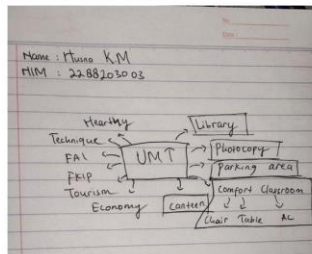 No :
Date :
Name : Husna KM
NIM : 2288203003
Hearthy
Technique
FAI
FKIP
Tourism
Economy
UMT
Library
Photocopy
Parking area
Canteen
Comfort Classroom
Chair Table AC